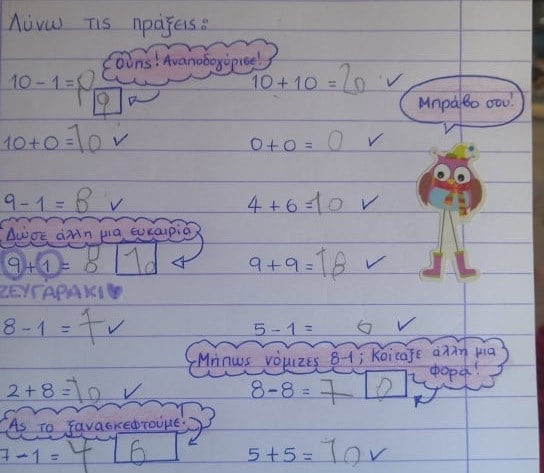 Λύνω τις πράξεις:
Ουπς! Αναποδογύρισε!
10 - 1 = 9
10 + 10 = 20 ✓
Μπράβο σου!
10 + 0 = 10 ✓
0 + 0 = 0 ✓
9 - 1 = 8 ✓
4 + 6 = 10 ✓
Δώσε άλλη μια ευκαιρία
9 + 1 = 8 10
9 + 9 = 18 ✓
ΖΕΥΓΑΡΑΚΙ
8 - 1 = 7 ✓
5 - 1 = ✓
Μήπως νόμιζες 8-1; Κοίταξε άλλη μια
φορά!
2 + 8 = 10 ✓
8 - 8 = 7 0
Ας το ξανασκεφτούμε!
7 - 1 = 4 6
5 + 5 = 10 ✓